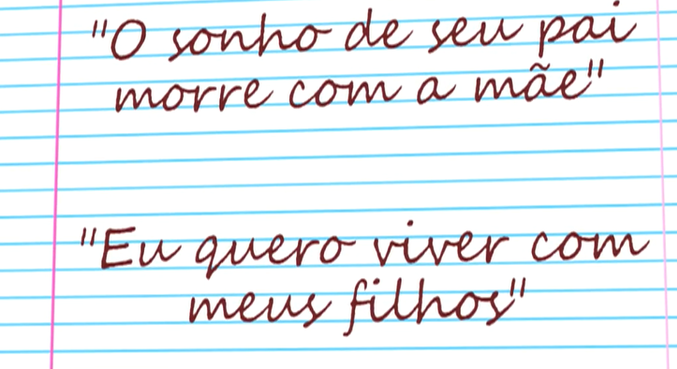 "O sonho de seu pai
morre com a mãe"
"Eu quero viver com
meus filhos"